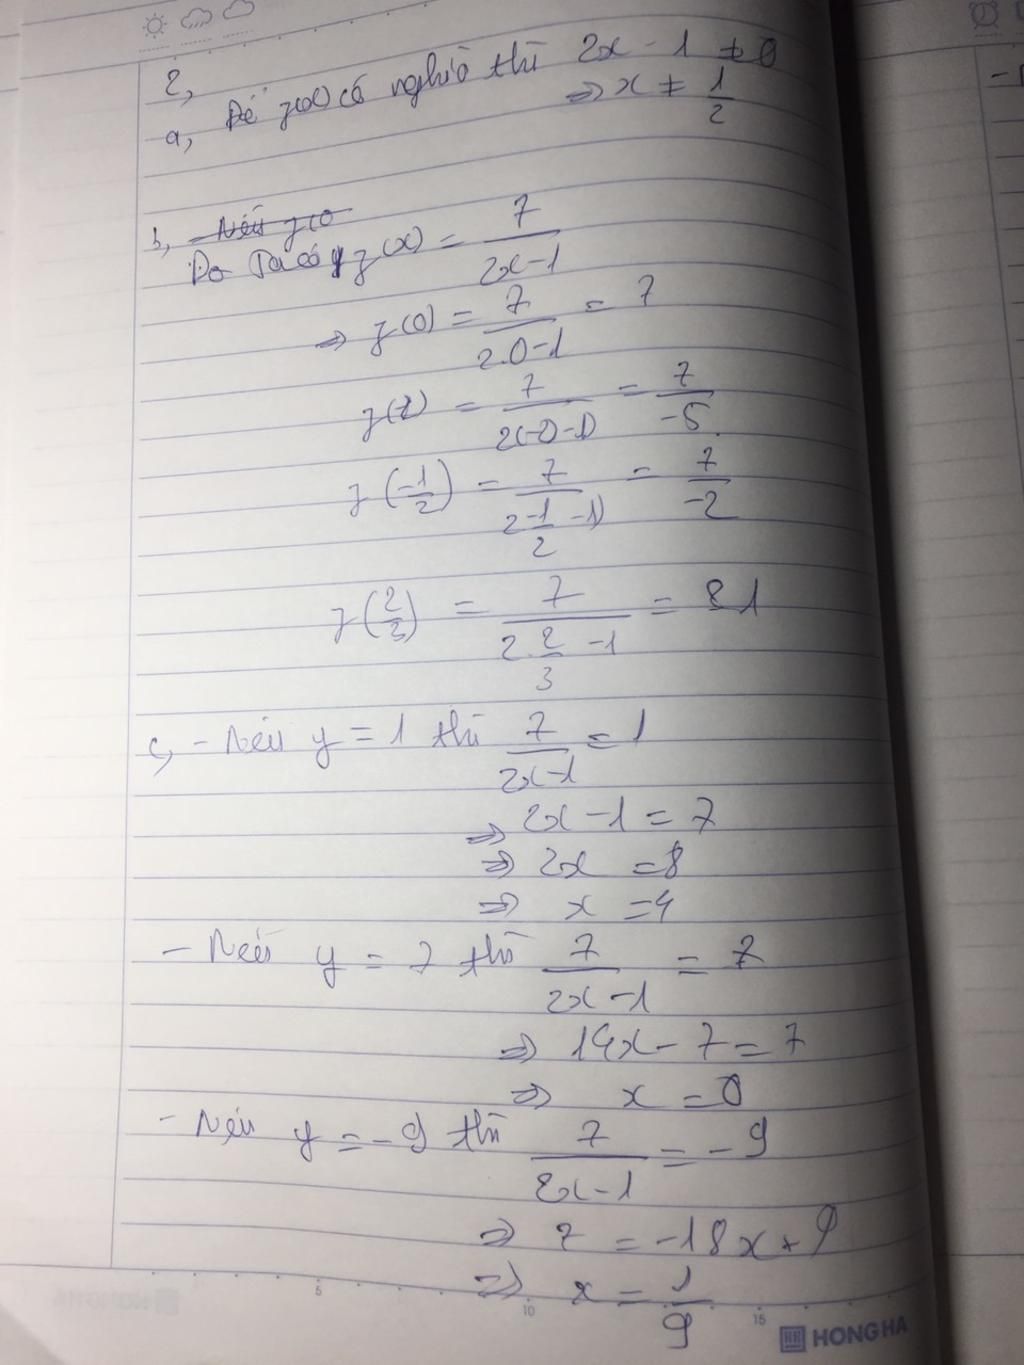 2,
a, Để y(x) có nghĩa thì 2x - 1 ≠ 0
=> x ≠ 1/2
b, Nếu y(0
Do Ta có y(x) = 7/(2x-1)
=> y(0) = 7/(2.0-1) = 7
= 7/(2(-2)-1) = 7/-5
y(-1/2) = 7/(2-1/2 -1) = 7/-2
y(2/3) = 7/(2.2/3 -1) = 21
c, - Nếu y = 1 thì 7/(2x-1) = 1
=> 2x - 1 = 7
=> 2x = 8
=> x = 4
- Nếu y = 7 thì 7/(2x-1) = 7
=> 14x - 7 = 7
=> x = 0
- Nếu y = -9 thì 7/(2x-1) = -9
=> 7 = -18x + 9
=> x = 1/9
5 10 15
HONG HA